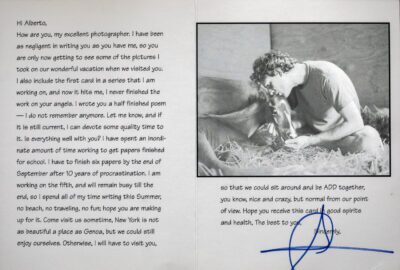 Hi Alberto,
How are you, my excellent photographer. I have been
as negligent in writing you as you have me, so you
are only now getting to see some of the pictures I
took on our wonderful vacation when we visited you.
I also include the first card in a series that I am
working on, and now it hits me, I never finished the
work on your angels. I wrote you a half finished poem
— I do not remember anymore. Let me know, and if
it is still current, I can devote some quality time to
it. Is everything well with you? I have spent an inordi-
nate amount of time working to get papers finished
for school. I have to finish six papers by the end of
September after 10 years of procrastination. I am
working on the fifth, and will remain busy till the
end, so I spend all of my time writing this Summer,
no beach, no traveling, no fun; hope you are making
up for it. Come visit us sometime, New York is not
as beautiful a place as Genoa, but we could still
enjoy ourselves. Otherwise, I will have to visit you,
so that we could sit around and be ADD together,
you know, nice and crazy, but normal from our point
of view. Hope you receive this card in good spirits
and health, The best to you.
Sincerely,